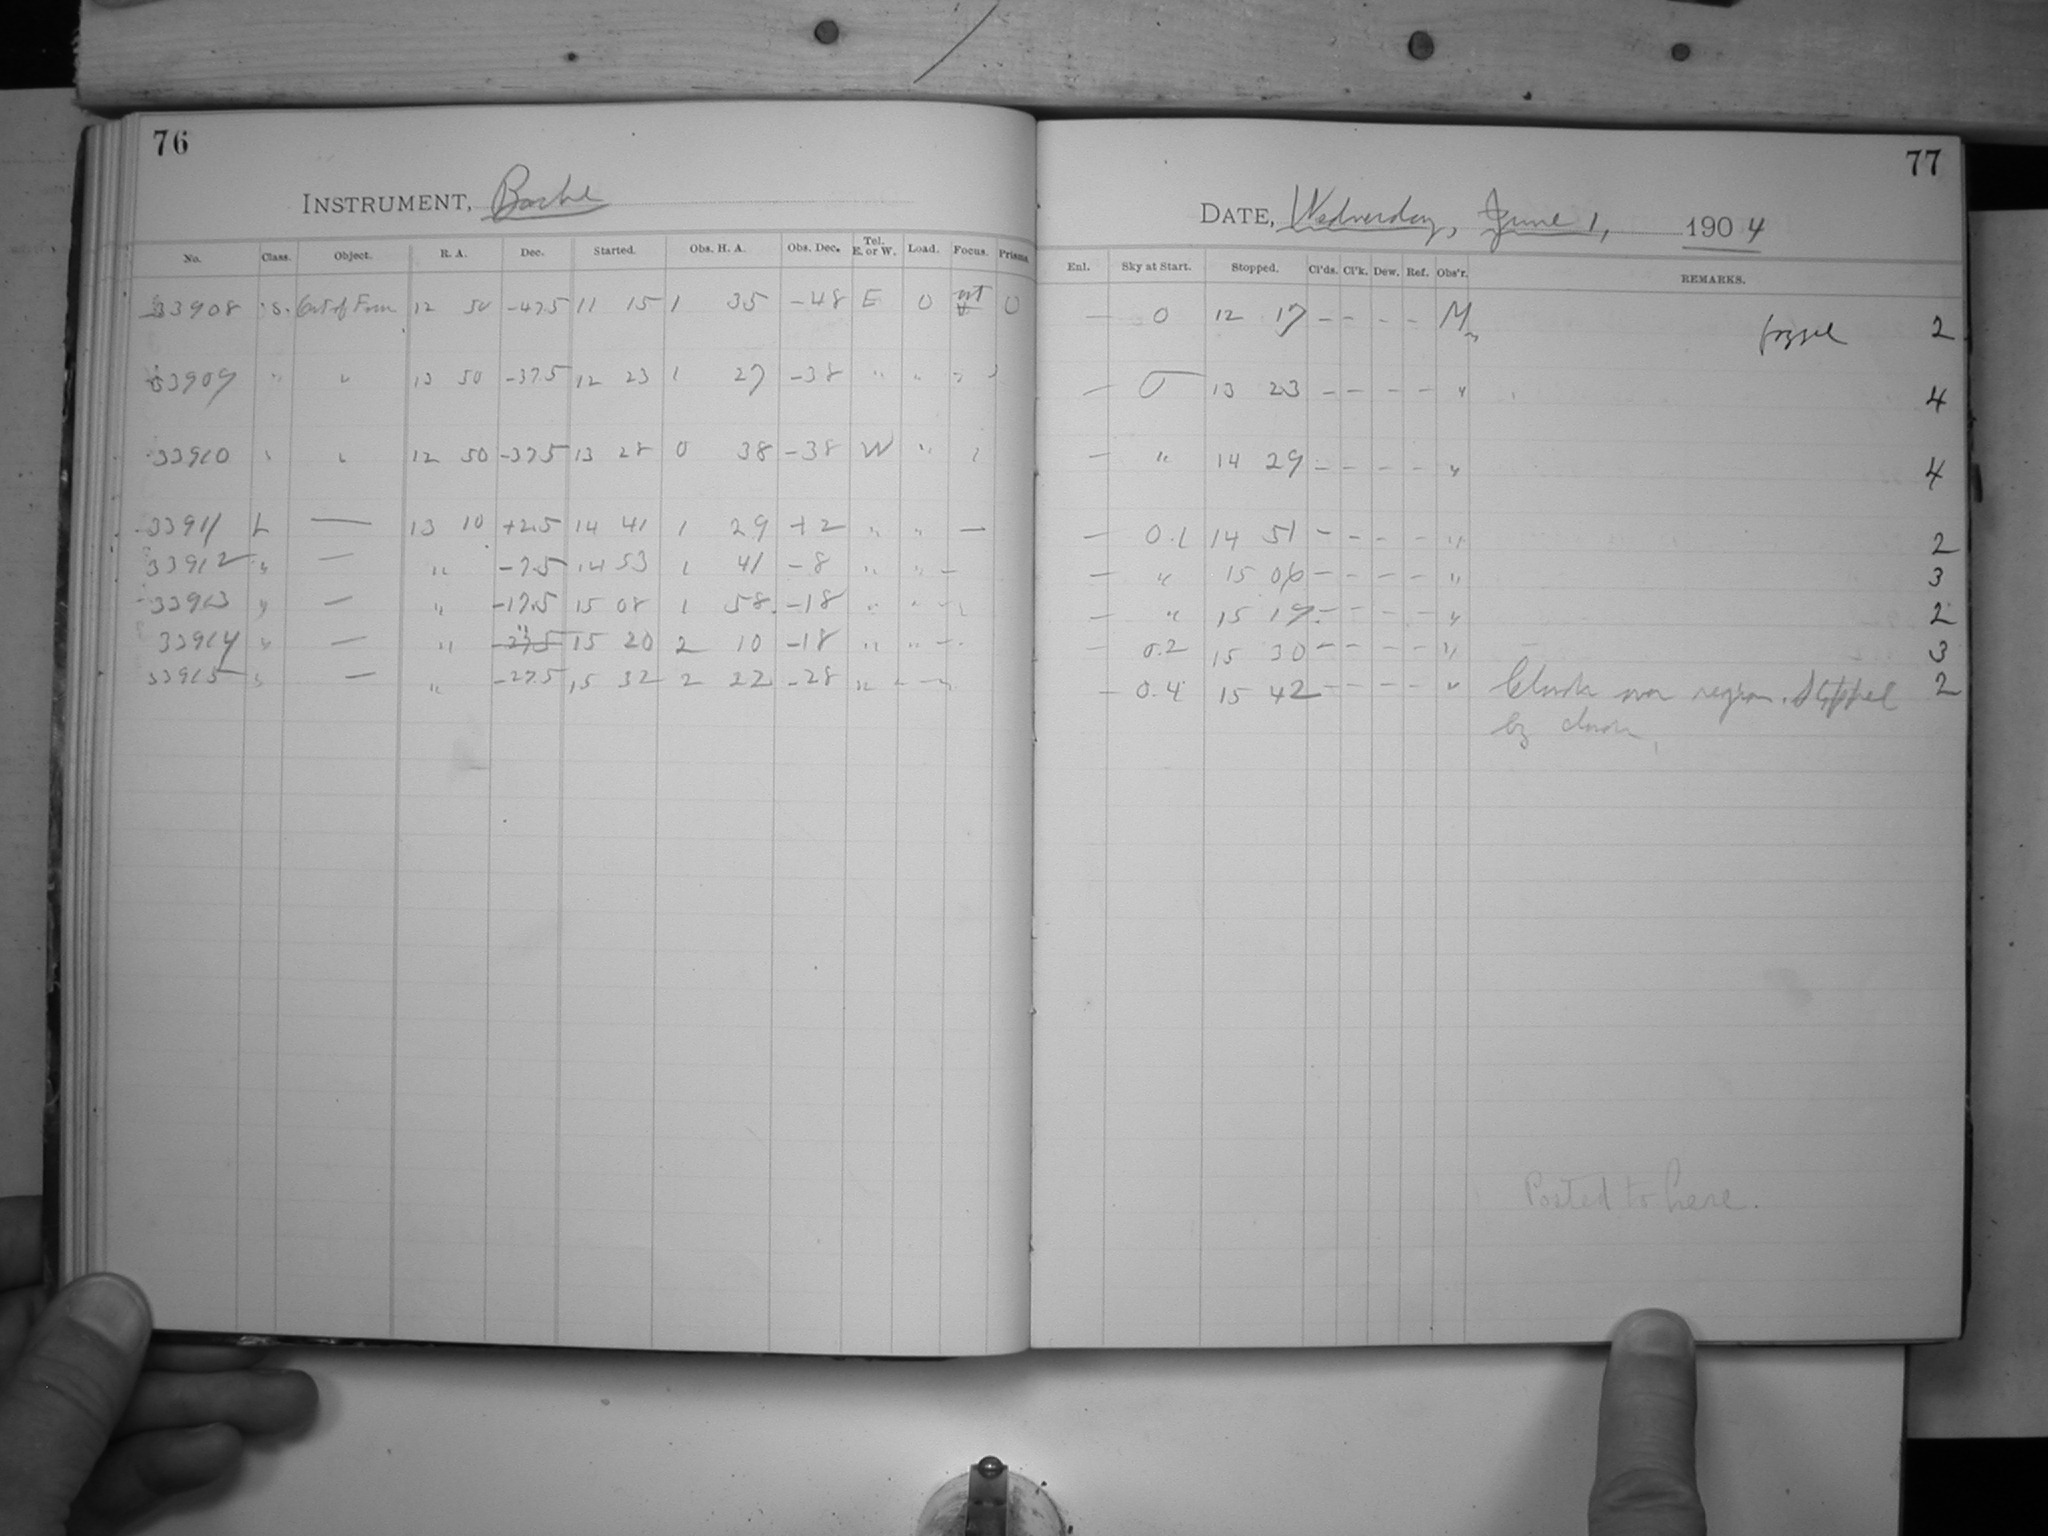 76
INSTRUMENT, Bache
No. Class. Object. R. A. Dec. Started. Obs. H. A. Obs. Dec. Tel. E. or W. Load. Focus. Prisms
33908 S. Out of Focus 12 50 -47.5 11 15 1 35 -48 E 0 0
33909 " " 13 50 -37.5 12 23 1 27 -38 " " "
33910 " " 12 50 -37.5 13 28 0 38 -38 W " "
33911 L — 13 10 +2.5 14 41 1 29 +2 " " —
33912 " — " -7.5 14 53 1 41 -8 " " —
33913 " — " -17.5 15 08 1 58 -18 " " —
33914 " — " " 15 20 2 10 -18 " " —
33915 " — " -27.5 15 32 2 22 -28 " — —
77
DATE, Wednesday, June 1, 1904
Enl. Sky at Start. Stopped. Cl'ds. Cl'k. Dew. Ref. Obs'r. REMARKS.
— 0 12 17 — — — — M 2
— 0 13 23 — — — — " 4
— " 14 29 — — — — " 4
— 0.1 14 51 — — — — " 2
— " 15 06 — — — — " 3
— " 15 19 — — — — " 2
— 0.2 15 30 — — — — " 3
— 0.4 15 42 — — — — " Clouds over region. Stopped 2
by clouds.
Posted to here.